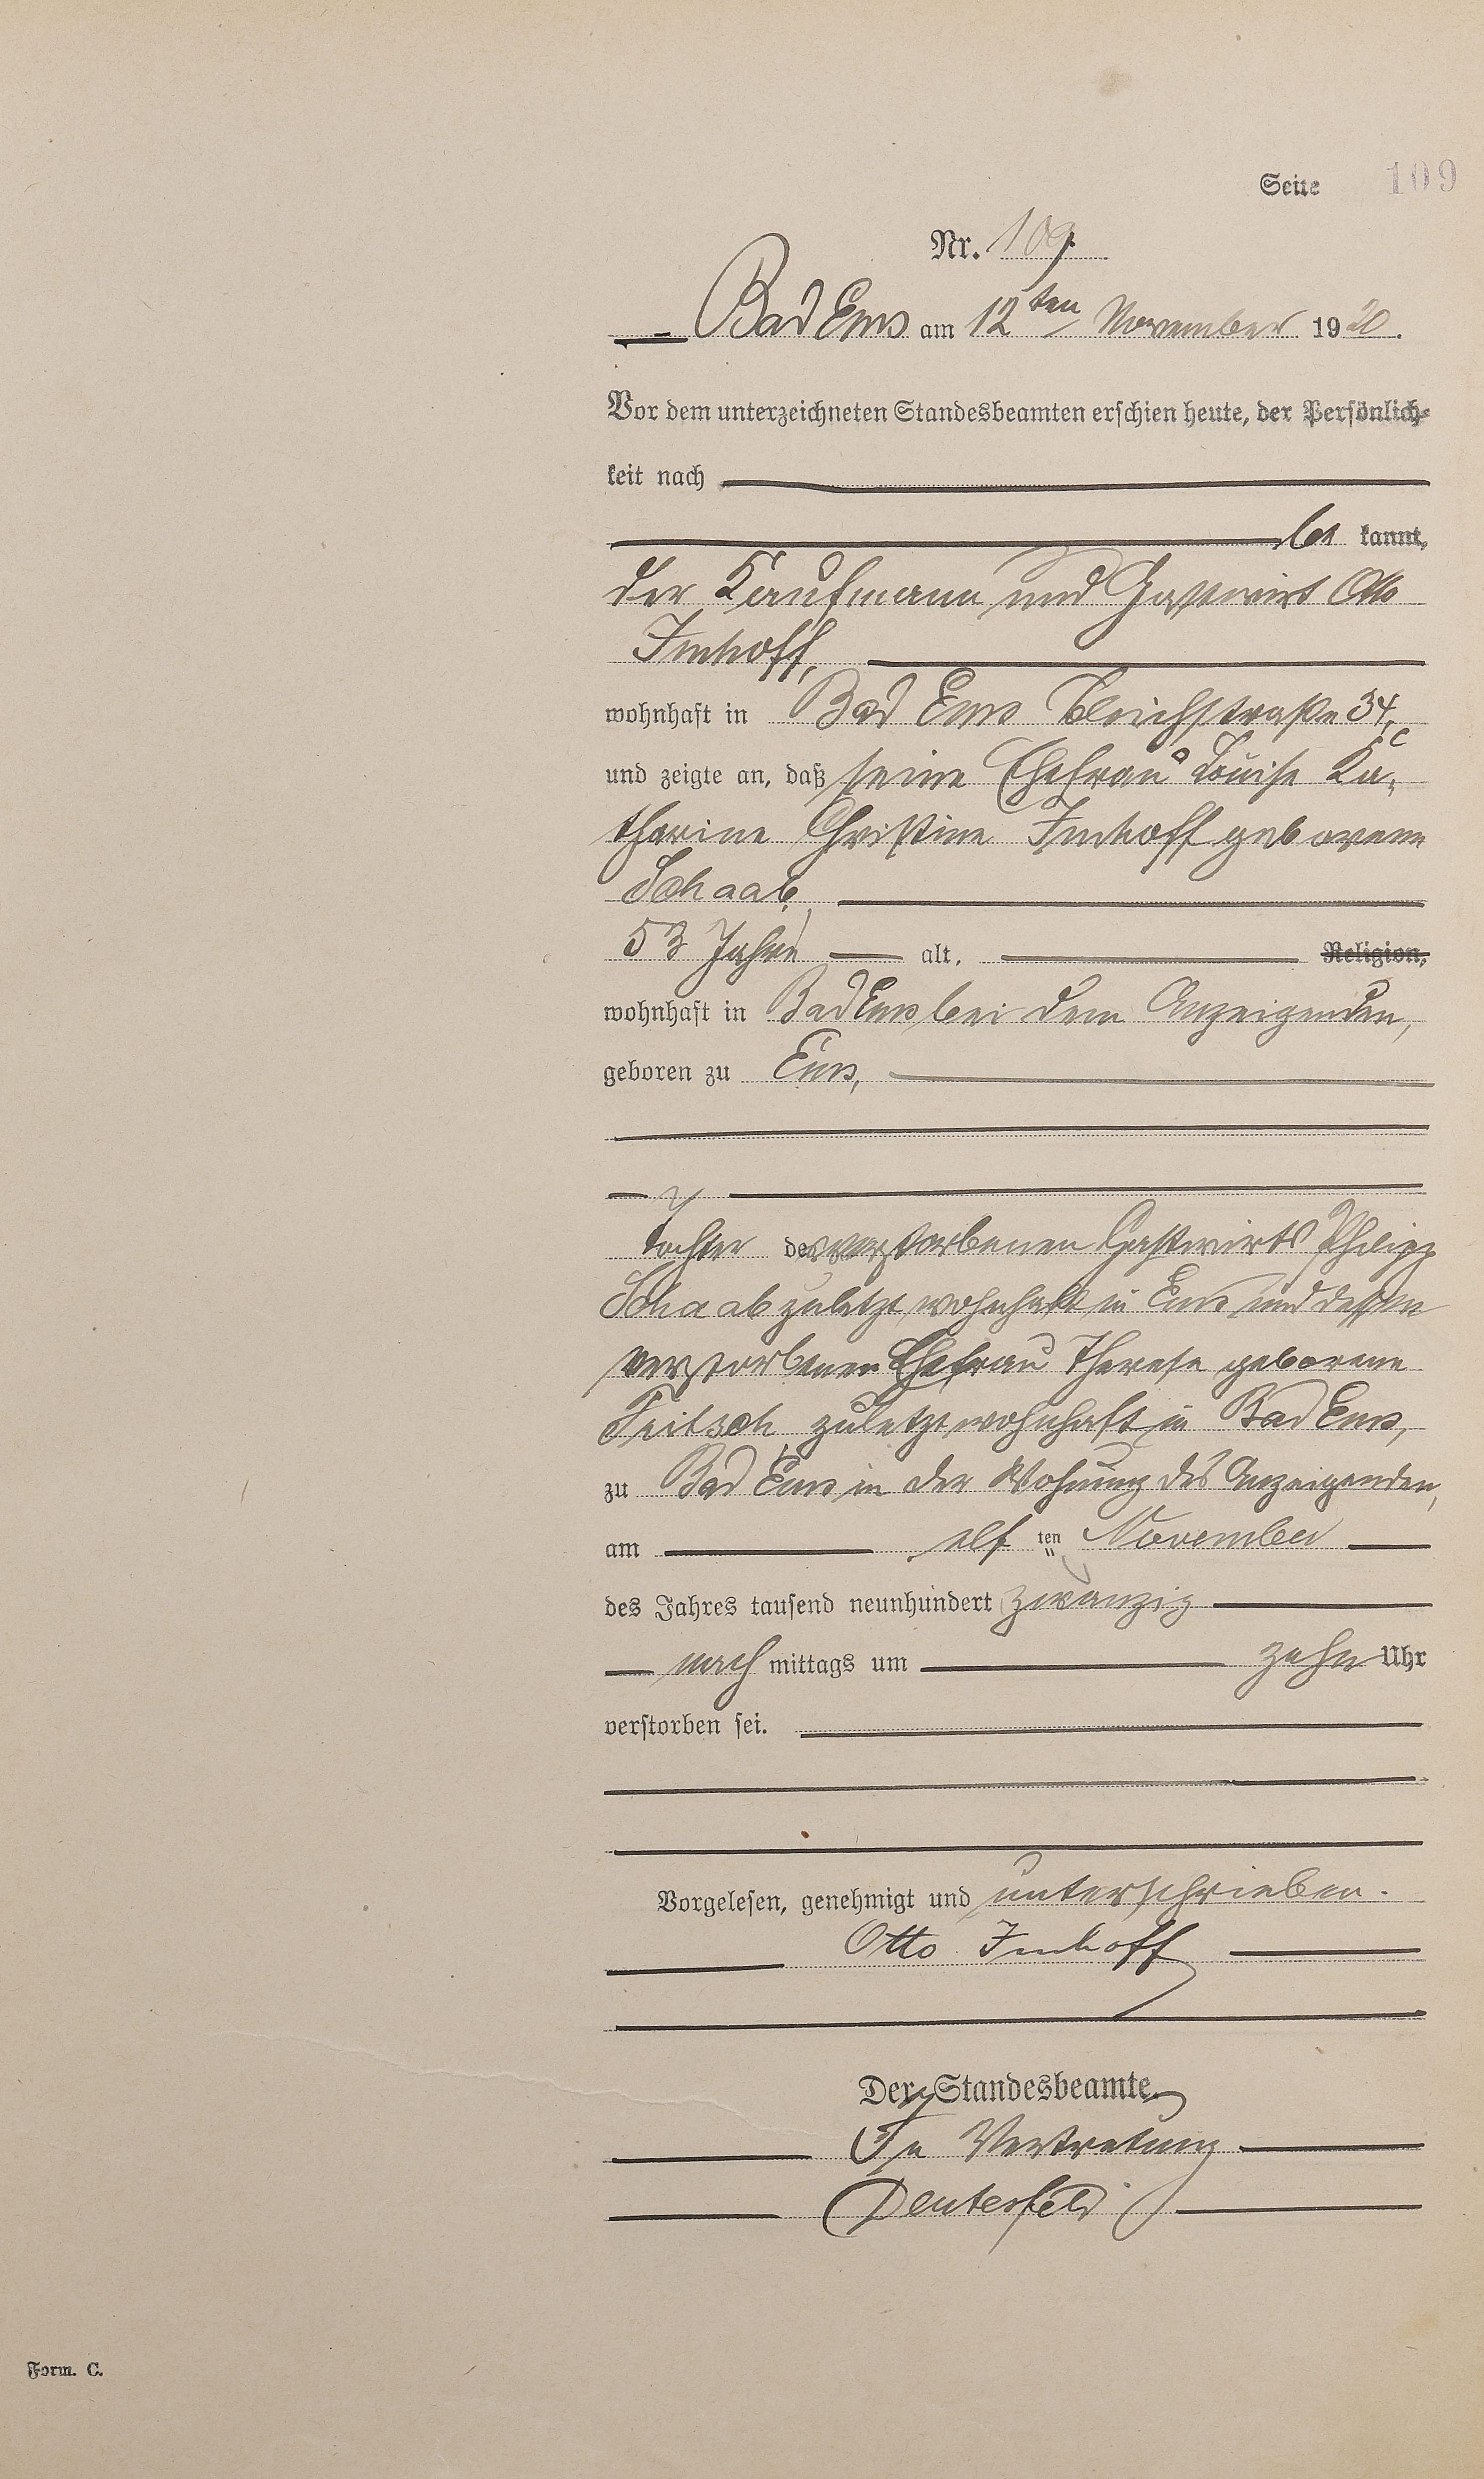 Seite 109
Nr. 109.
Bad Ems am 12ten November 1920.
Vor dem unterzeichneten Standesbeamten erschien heute, der Persönlich-
keit nach
be kannt,
der Kaufmann und Gastwirt Otto
Imhoff,
wohnhaft in Bad Ems Bleichstraße 34,
und zeigte an, daß seine Ehefrau Louise Ka-
tharine Christine Imhoff geborene
Schaab,
53 Jahre alt, Religion,
wohnhaft in Bad Ems bei dem Anzeigenden,
geboren zu Ems,
Tochter des verstorbenen Gastwirts Philipp
Schaab zuletzt wohnhaft in Ems und dessen
verstorbenen Ehefrau Therese geborene
zuletzt wohnhaft in Bad Ems,
zu Bad Ems in der Wohnung des Anzeigenden,
am elf ten November
des Jahres tausend neunhundert zwanzig
nach mittags um zehn Uhr
verstorben sei.
Vorgelesen, genehmigt und unterschrieben.
Otto Imhoff
Der Standesbeamte.
In Vertretung
Form. C.